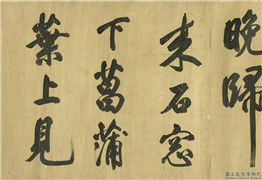 晚歸
来石窓
下菖蒲
葉上見
國立故宮博物院